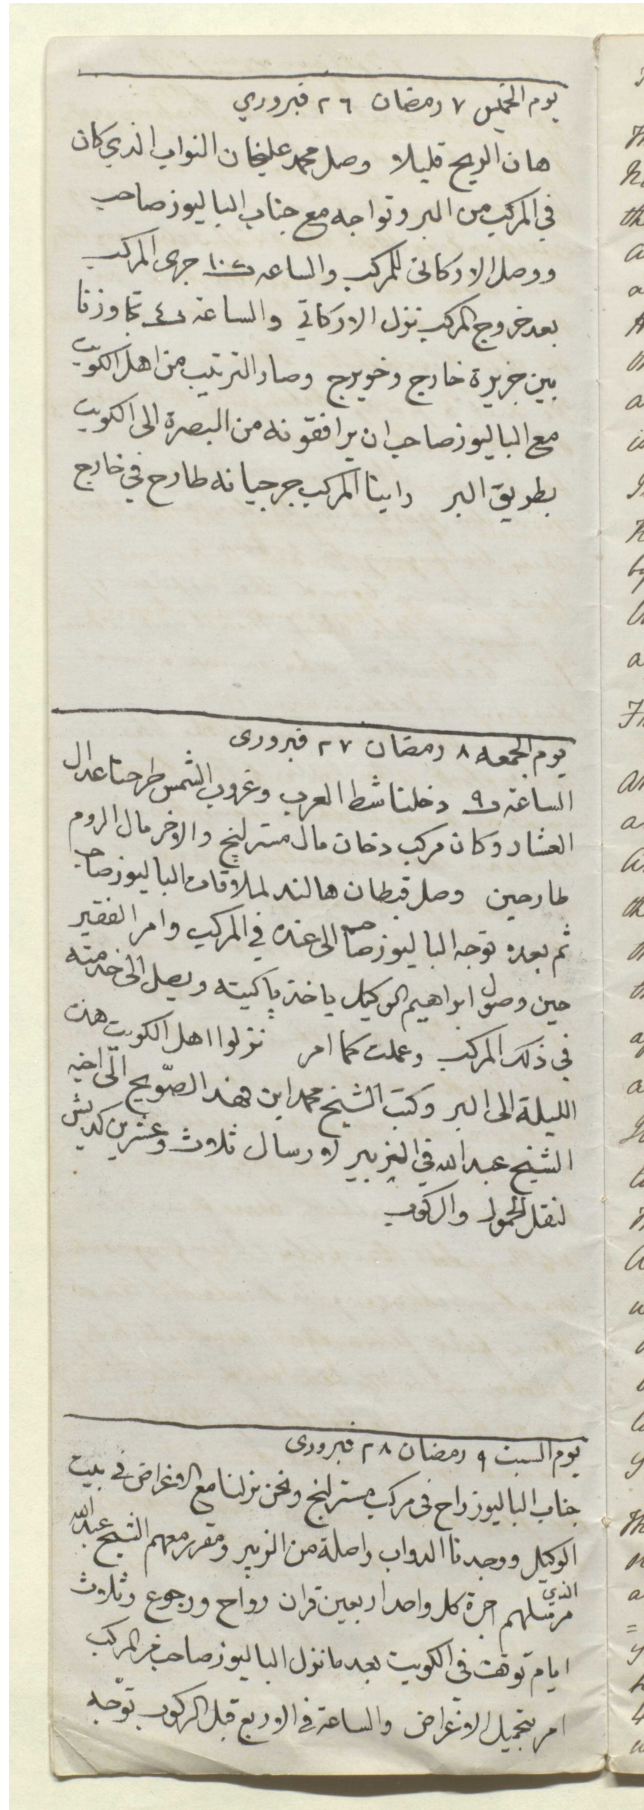 يوم الخميس ٧ رمضان ٢٦ فبروري
هان الريح قليلا وصل محمد عليخان النواب الذي كان
في المركب من البر وتواجه مع جناب الباليوز صاحب
ووصل الاركاتى للمركب والساعه ١٠ جرى المركب
بعد خروج المركب نزل الاركاتي والساعة ٤ تجاوزنا
بين جزيرة خارج وخويرج وصار الترتيب من اهل الكويت
مع الباليوز صاحب ان يرافقونه من البصرة الى الكويت
بطريق البر راينا المركب جرجيانه طارح في خارج
يوم الجمعه ٨ رمضان ٢٧ فبرورى
الساعة ٩ دخلنا شط العرب وغروب الشمس طرحنا عدال
العشار وكان مركب دخان مال مستر لنج والاخر مال الروم
طارحين وصل قبطان هالند لملاقات الباليوز صاحب
ثم بعده توجه الباليوز صاحب الى عنده في المركب وامر الفقير
حين وصول ابراهيم الوكيل ياخذ پاكيته ويصل الى خدمته
في ذلك المركب وعملت كما امر نزلوا اهل الكويت هذه
الليلة الى البر وكتب الشيخ محمد ابن هند الصّويح الى اخيه
الشيخ عبد الله في الزبير لارسال ثلاث وعشرين كديش
لنقل الحمول والركوب
يوم السبت ٩ رمضان ٢٨ فبرورى
جناب الباليوز راح فى مركب مستر لنج ونحن نزلنا مع الاغراض في بيت
الوكيل ووجدنا الدواب واصلة من الزبير ومقرر معهم الشيخ عبد الله
الذي مرسلهم اجرة كل واحد اربعين قران رواح ورجوع وثلاث
ايام توقف فى الكويت بعد ما نزل الباليوز صاحب من المركب
امر بتحميل الاغراض والساعة في الاربع قبل الركوب توّجه